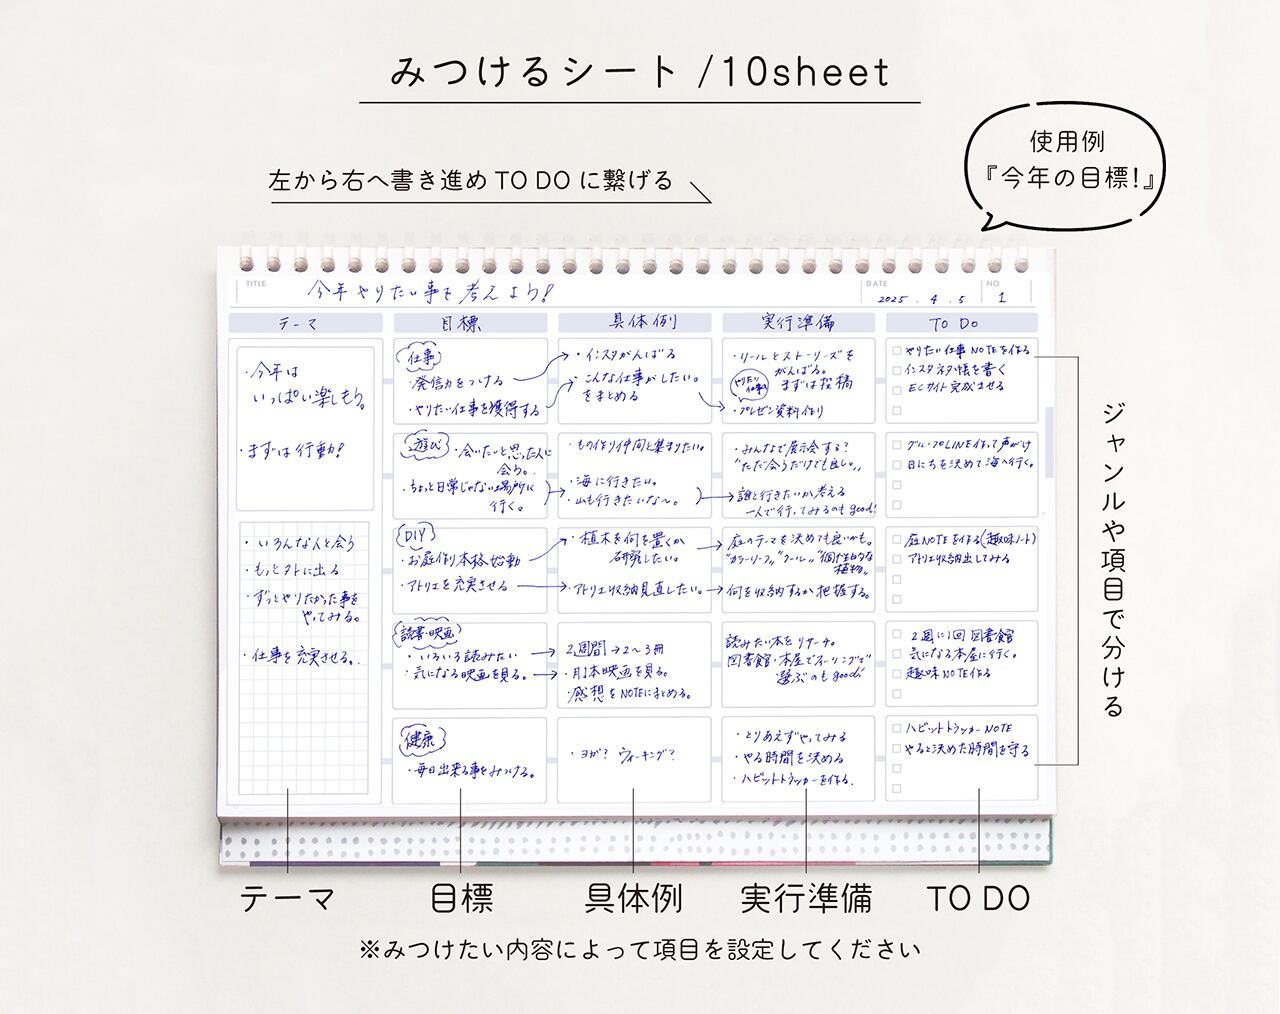 みつけるシート /10sheet
使用例
『今年の目標!』
左から右へ書き進め TO DO に繋げる
TITLE
今年やりたい事を考えよう!
DATE
2025 . 4 . 5
NO
1
テーマ
目標
具体例
実行準備
TO DO
・今年は
いっぱい楽しもう。
・まずは行動!
・いろんな人と会う
・もっと外に出る
・ずっとやりたかった事を
やってみる。
・仕事を充実させる。
仕事
・発信力をつける
・やりたい仕事を獲得する
・インスタがんばる
・こんな仕事がしたい。
をまとめる
・リールとストーリーズを
がんばる。
まずは投稿
やりたい
仕事
・プレゼン資料作り
やりたい仕事NOTEを作る
インスタネタ帳を書く
ECサイト完成させる
遊び
・会いたいと思った人に
会う。
・ちょっと日常じゃない場所に
行く。
・もの作り仲間と集まりたい。
・海に行きたい。
・山も行きたいな〜。
・みんなで展示会する?
"ただ会うだけでも良い。"
・誰と行きたいか考える
一人で行ってみるのもgood!
グループLINEを作って声がけ
日にちを決めて海へ行く。
DIY
・お庭作り本格始動
・アトリエを充実させる
・植木を何を置くか
研究したい。
・アトリエ収納見直したい。
庭のテーマを決めても良いかも。
"カラーリーフ" "クール" "個性的な
植物"
何を収納するか把握する。
庭NOTEを作る(趣味ノート)
アトリエ収納出してみる
読書・映画
・いろいろ読みたい
・気になる映画を見る。
2週間→2〜3冊
・月1本映画を見る。
・感想をNOTEにまとめる。
読みたい本をリサーチ。
図書館・本屋でフィーリングで
選ぶのもgood!
2週に1回 図書館
気になる本屋に行く。
趣味NOTE作る
健康
・毎日出来る事をみつける。
・ヨガ? ウォーキング?
・とりあえずやってみる
・やる時間を決める
・ハビットトラッカーを作る.
ハビットトラッカーNOTE
やると決めた時間を守る
ジャンルや項目で分ける
テーマ
目標
具体例
実行準備
TO DO
※みつけたい内容によって項目を設定してください